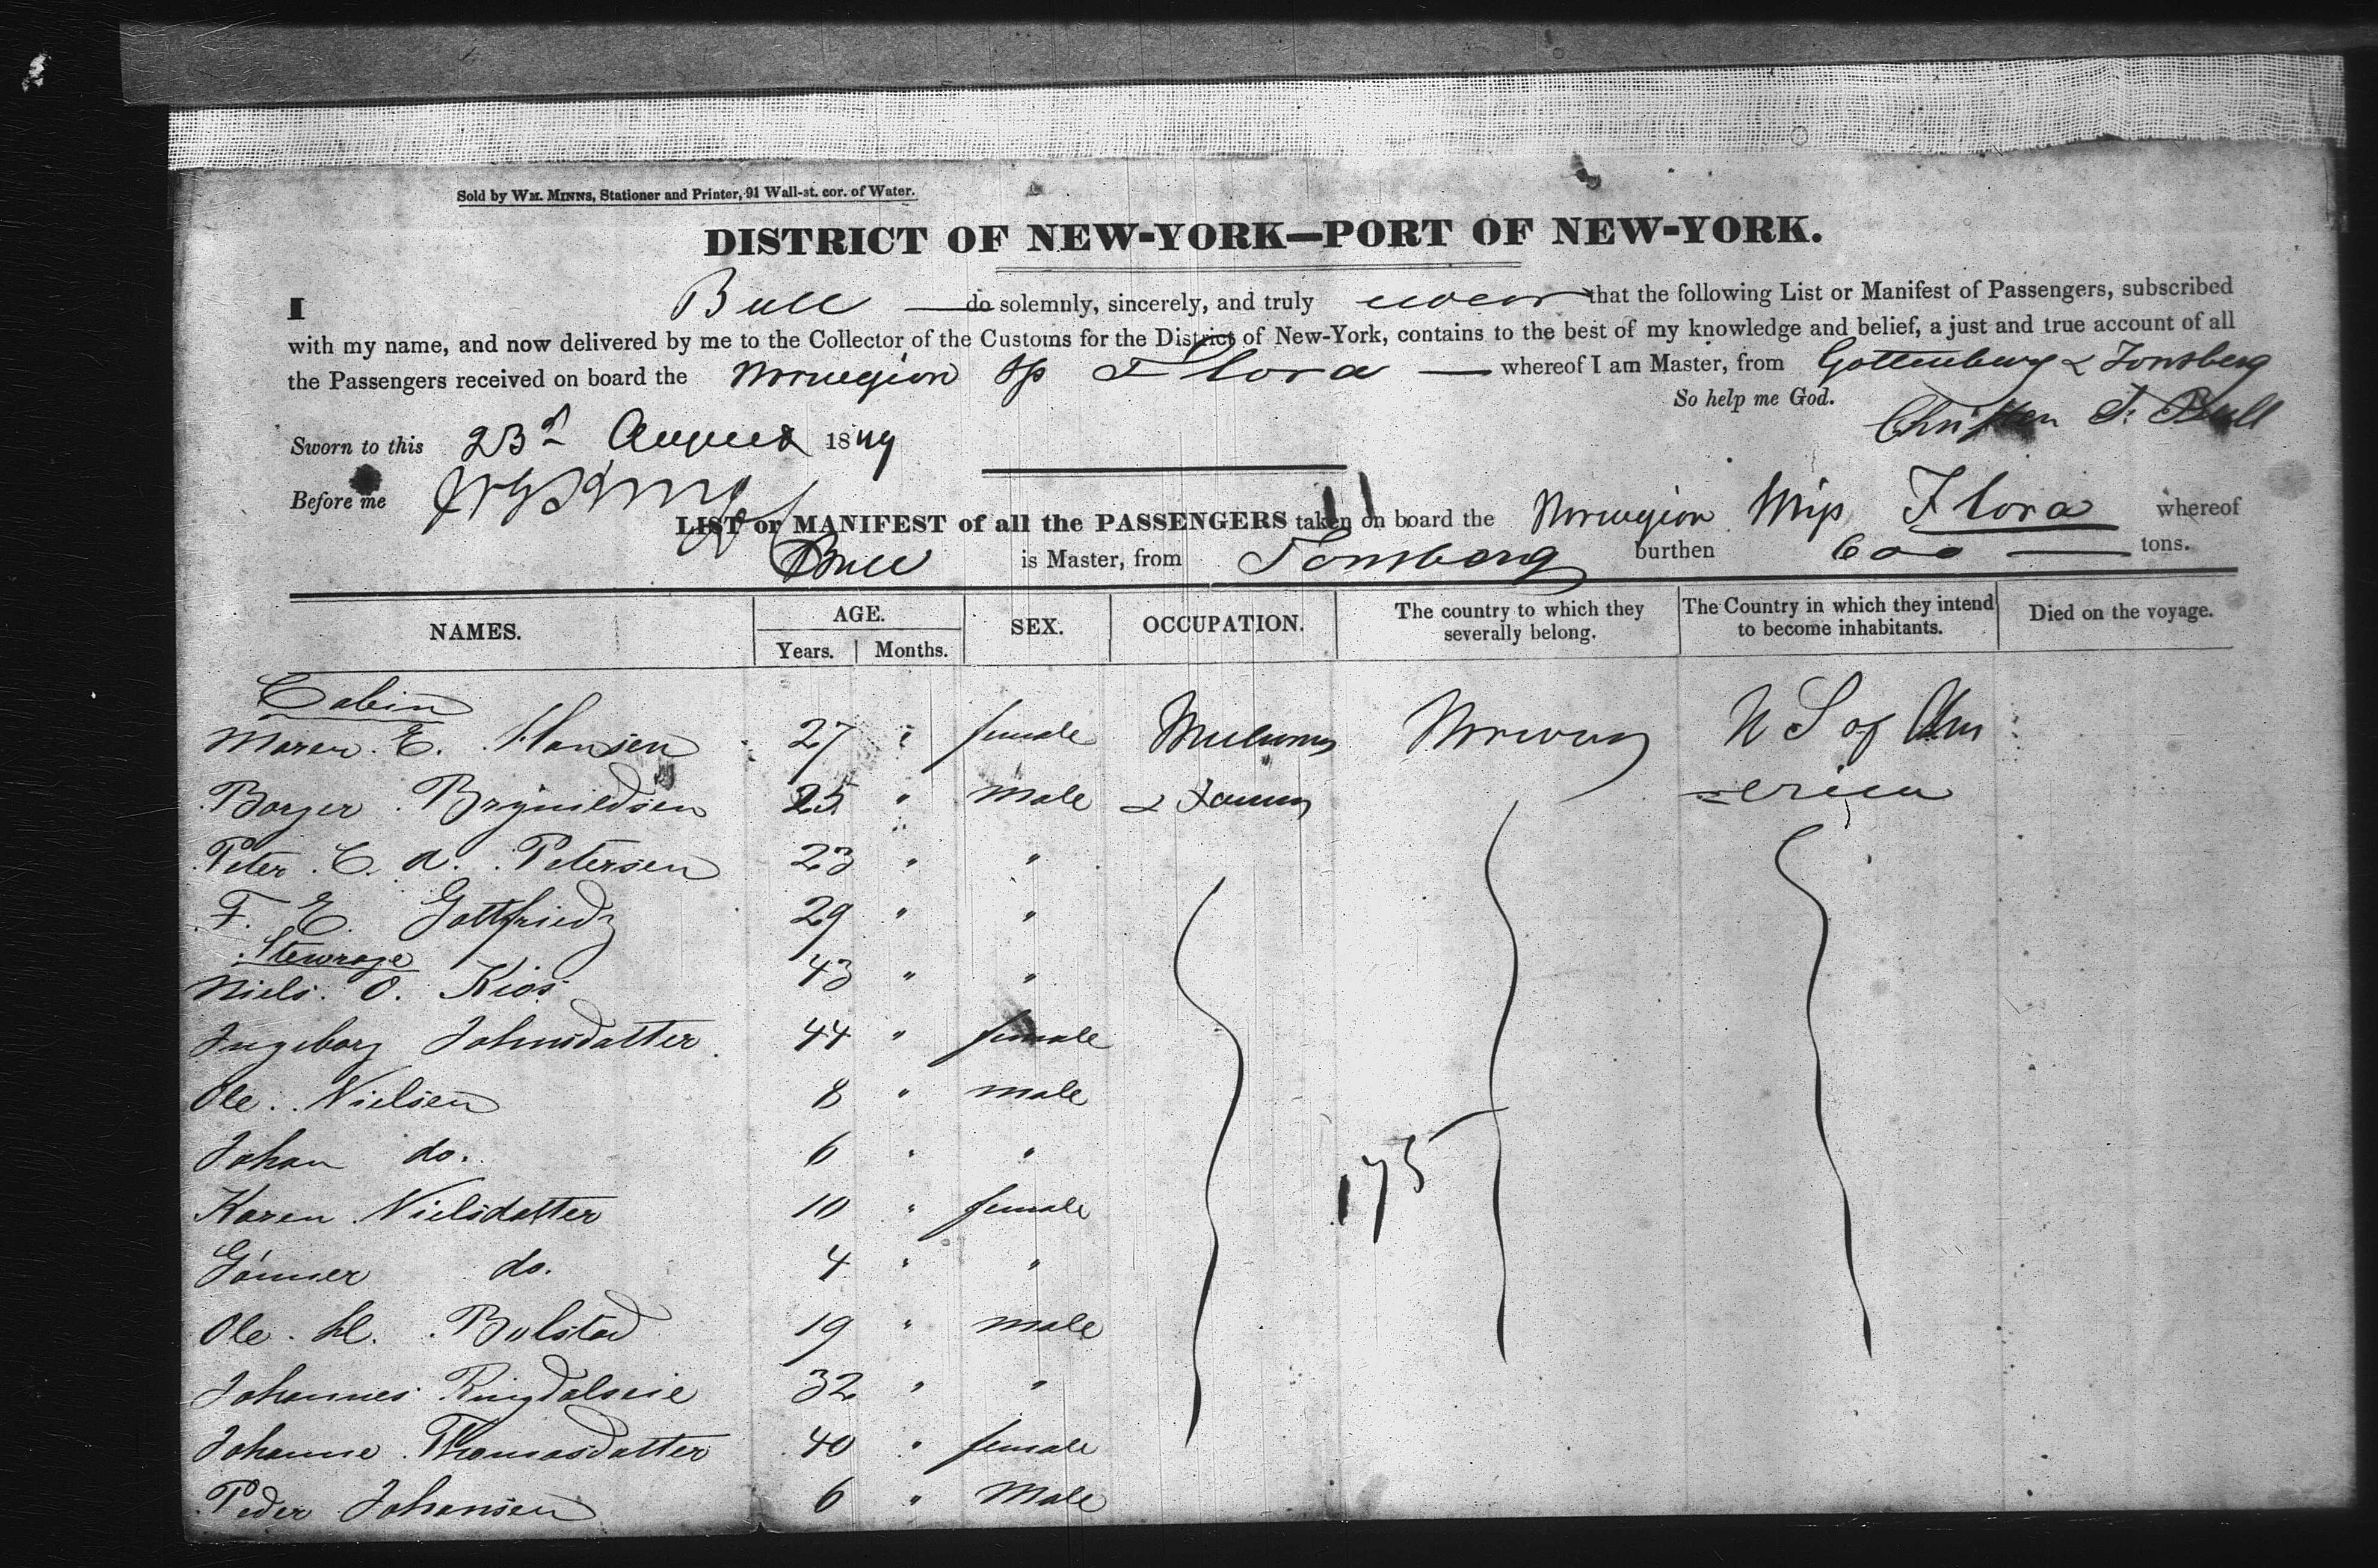 Sold by WM. MINNS, Stationer and Printer, 91 Wall-st. cor. of Water.
DISTRICT OF NEW-YORK—PORT OF NEW-YORK.
I Bull do solemnly, sincerely, and truly swear that the following List or Manifest of Passengers, subscribed
with my name, and now delivered by me to the Collector of the Customs for the District of New-York, contains to the best of my knowledge and belief, a just and true account of all
the Passengers received on board the Norwegion Sp Flora whereof I am Master, from Gottenburg & Tonsberg
So help me God.
Sworn to this 23d August 1849 Christen F. Bull
Before me
11
LIST or MANIFEST of all the PASSENGERS taken on board the Norwegion Ship Flora whereof
Bull is Master, from Tonsberg burthen 600 tons.
NAMES. AGE. Years. Months. SEX. OCCUPATION. The country to which they severally belong. The Country in which they intend to become inhabitants. Died on the voyage.
Cabin
Maren E. Hansen 27 " female Norway U S of Am
Borger Brynildsen 25 " male & erica
Peter C. A. Petersen 23 " "
F. E. Gottfriedz 29 " "
Stewrage
Niels O. Kios 43 " "
Ingeborg Johnsdatter 44 " female
Ole Nielsen 8 " male
Johan do. 6 " "
175
Karen Nielsdatter 10 " female
do. 4 " "
Ole H. Bolstad 19 " male
Johannes Ringdalseie 32 " "
Johanne Thomasdatter 40 " female
Peder Johansen 6 " Male